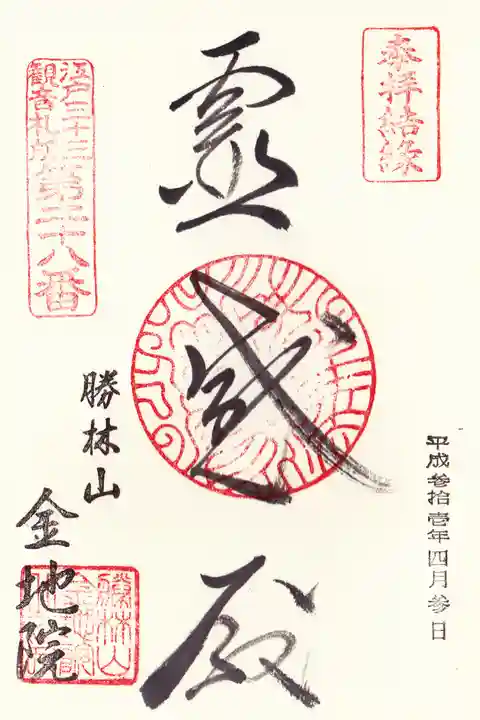 奉拝結縁
平成参拾壱年四月参日
霊感殿
江戸三十三
観音札所
第二十八番
勝林山
金地院
勝林山